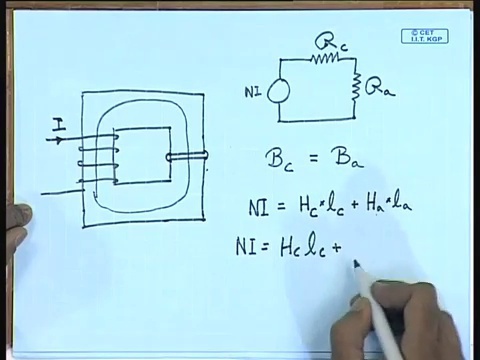 © CET
I.I.T. KGP
I
R_c
NI
R_a
B_c = B_a
NI = H_c * l_c + H_a * l_a
NI = H_c l_c +